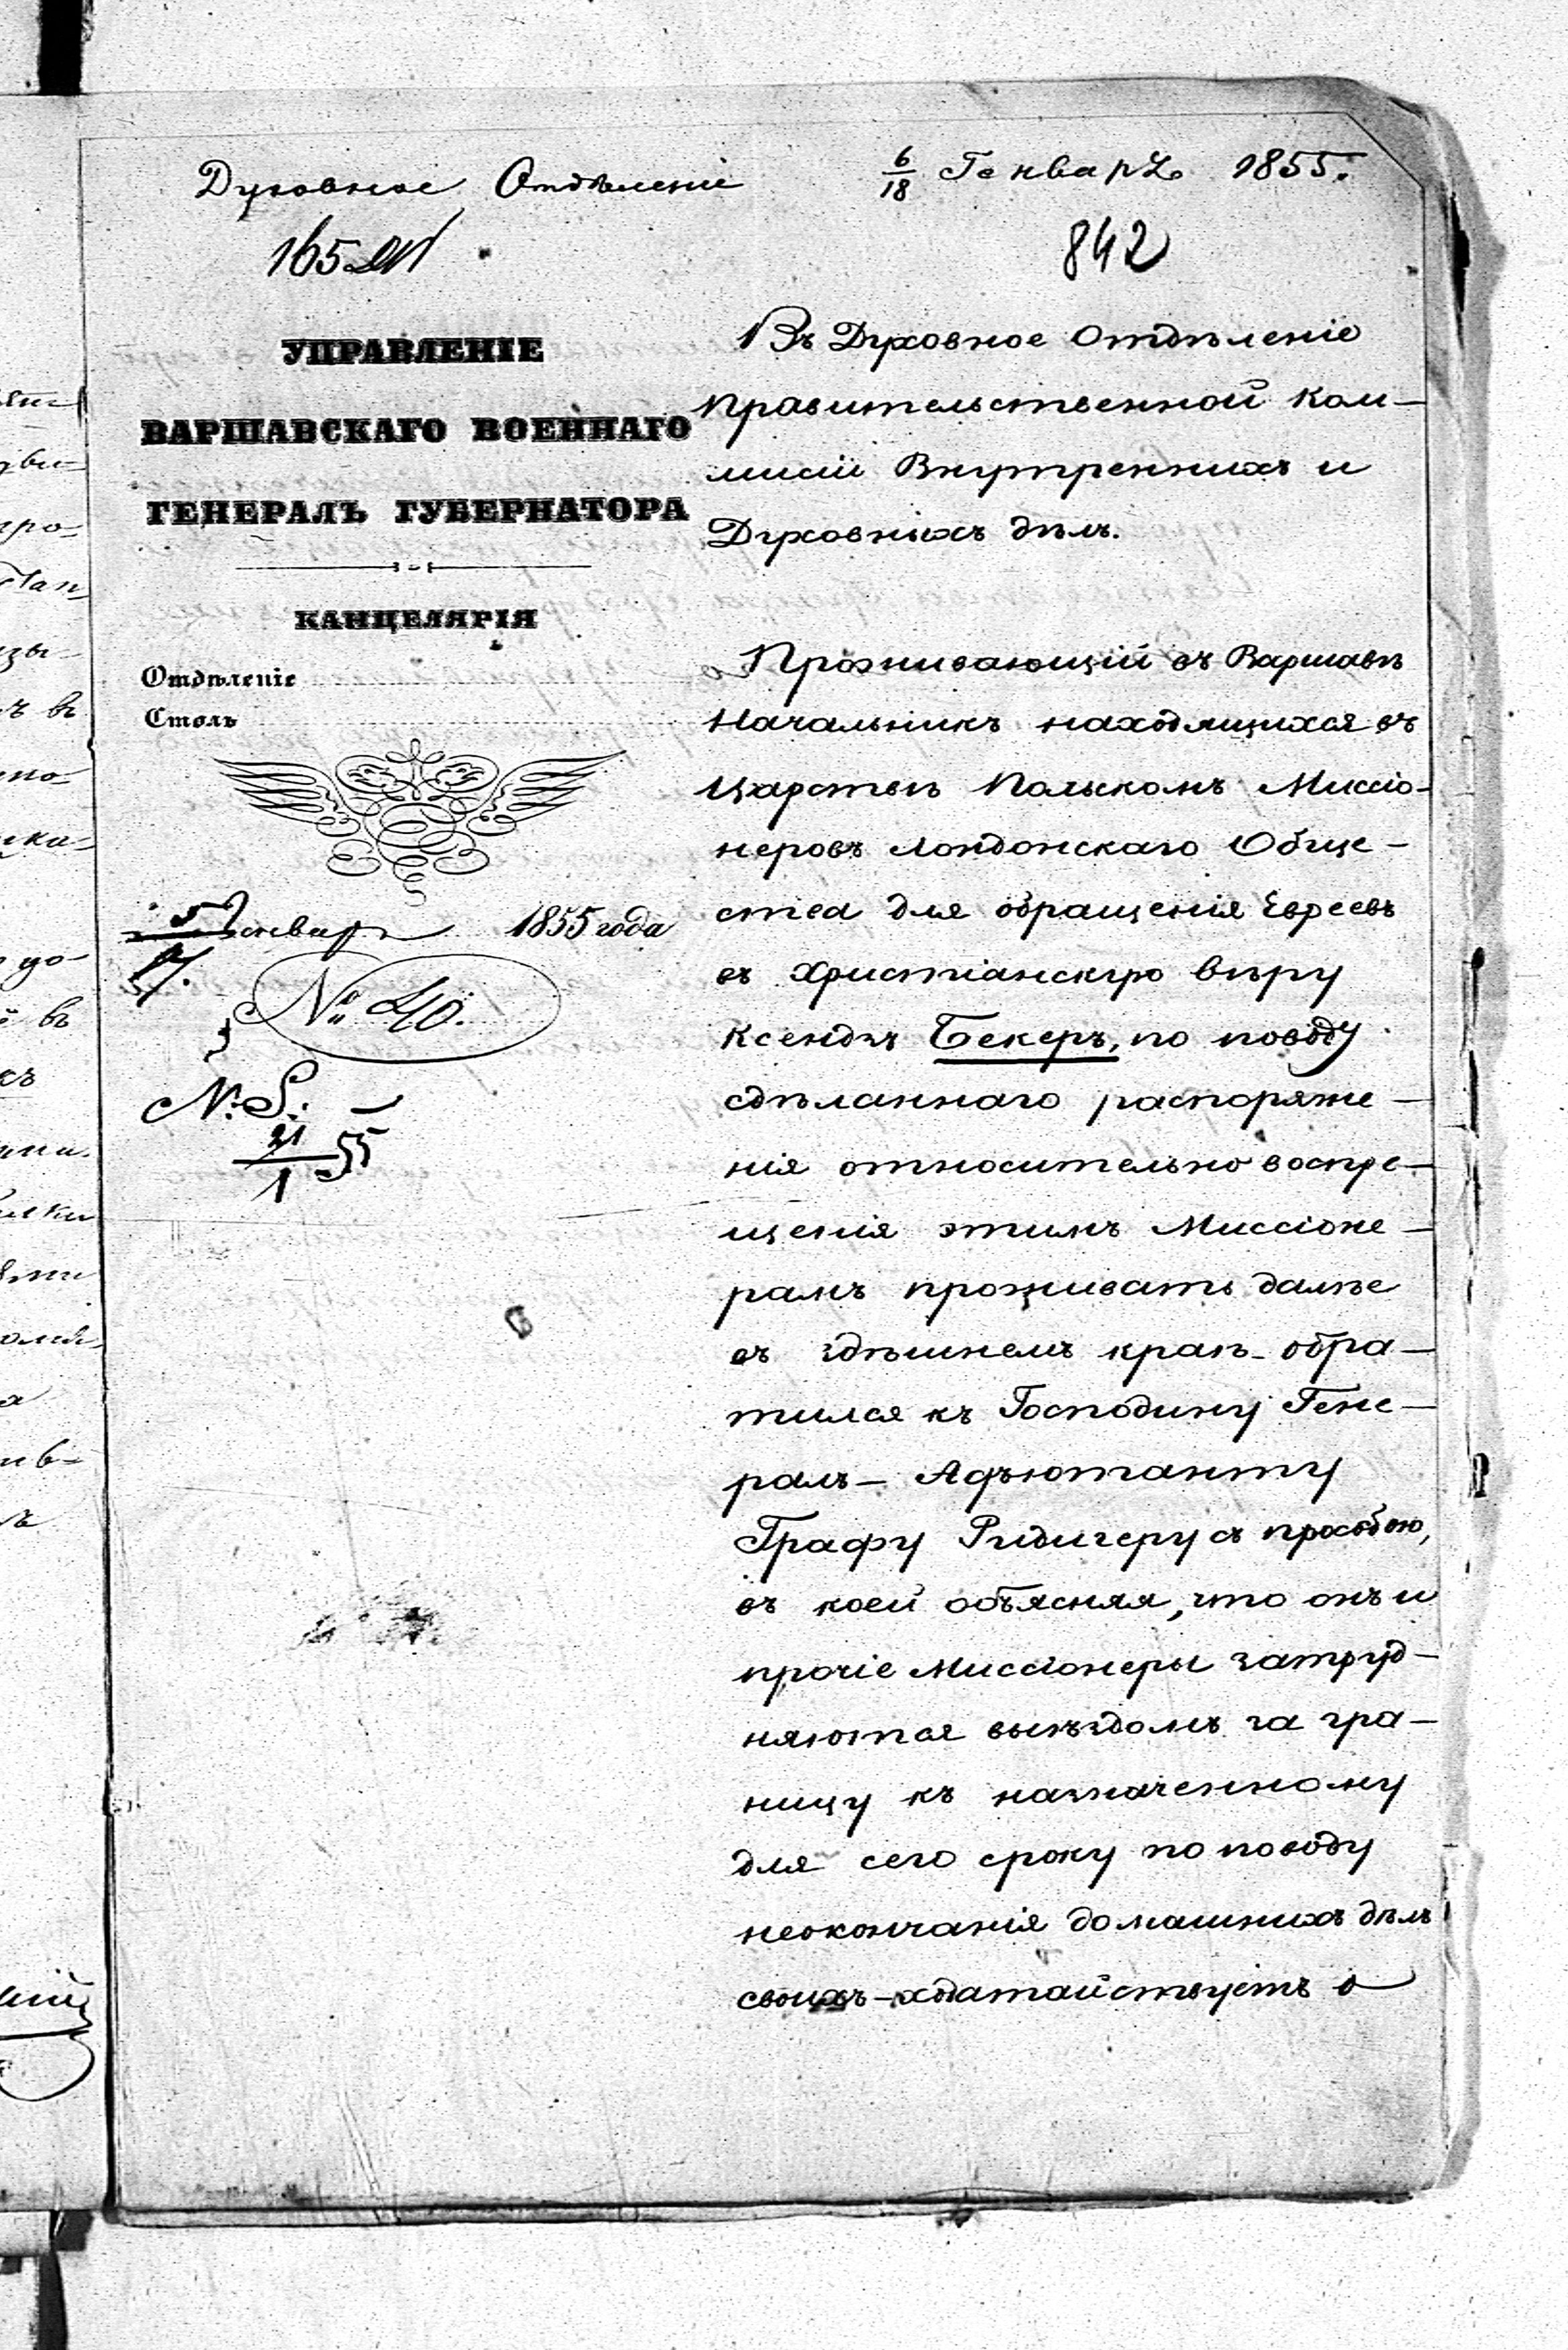 Духовное Отдѣленіе
6/18 Генваря 1855.
165
842
УПРАВЛЕНІЕ
ВАРШАВСКАГО ВОЕННАГО
ГЕНЕРАЛЪ ГУБЕРНАТОРА
КАНЦЕЛЯРІЯ
Отдѣленіе
Столъ
5/17. Января 1855 года
№ 40.
21/1 55
Въ Духовное Отдѣленіе
Правительственной Ком-
мисіи Внутреннихъ и
Духовныхъ дѣлъ.
Проживающій въ Варшавѣ
Начальникъ находящихся въ
Царствѣ Польскомъ Миссіо-
неровъ Лондонскаго Обще-
ства для обращенія Евреевъ
въ Христіанскую вѣру
Ксендзъ Бекеръ, по поводу
сдѣланнаго распоряже-
нія относительно воспре-
щенія этимъ Миссіоне-
рамъ проживать далѣе
въ здѣшнемъ краѣ- обра-
тился къ Господину Гене-
ралъ- Адъютанту
Графу Ридигеру съ прозбою,
въ коей объясняя, что онъ и
прочіе Миссіонеры затруд-
няются выѣздомъ за гра-
ницу къ назначенному
для сего сроку по поводу
неокончанія домашнихъ дѣлъ
своихъ-ходатайствуетъ о